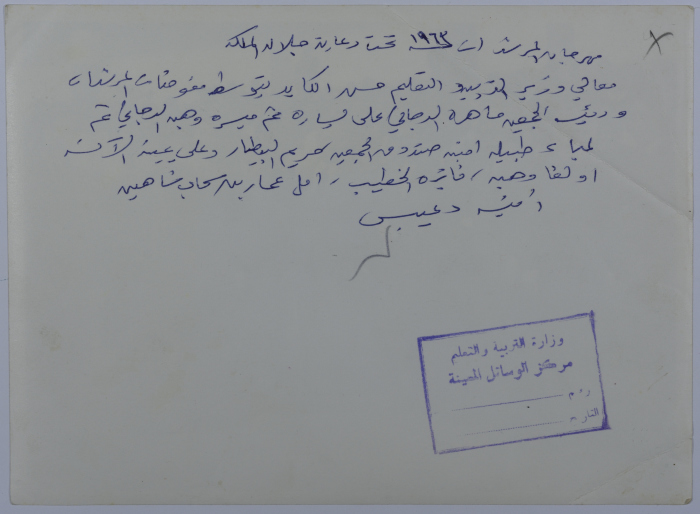 مهرجان المرشدات سنة ١٩٦٣ تحت رعاية جلالة الملكة
معالي وزير التربية والتعليم حسن الكايد يتوسط مفوضات المرشدات
ورئيسة الجمعية ماهرة الدجاني على يساره ثم ميسره وهبه الدجاني ثم
لمياء طبيله امينة صندوق الجمعية كريم البيطار وعلى يمينه الآنسة
اولغا وهبه، فائزه الخطيب، امل عمارين سحاب شاهين
دعيبس
وزارة التربية والتعلم
مركز الوسائل المعينة
رقم
التاريخ